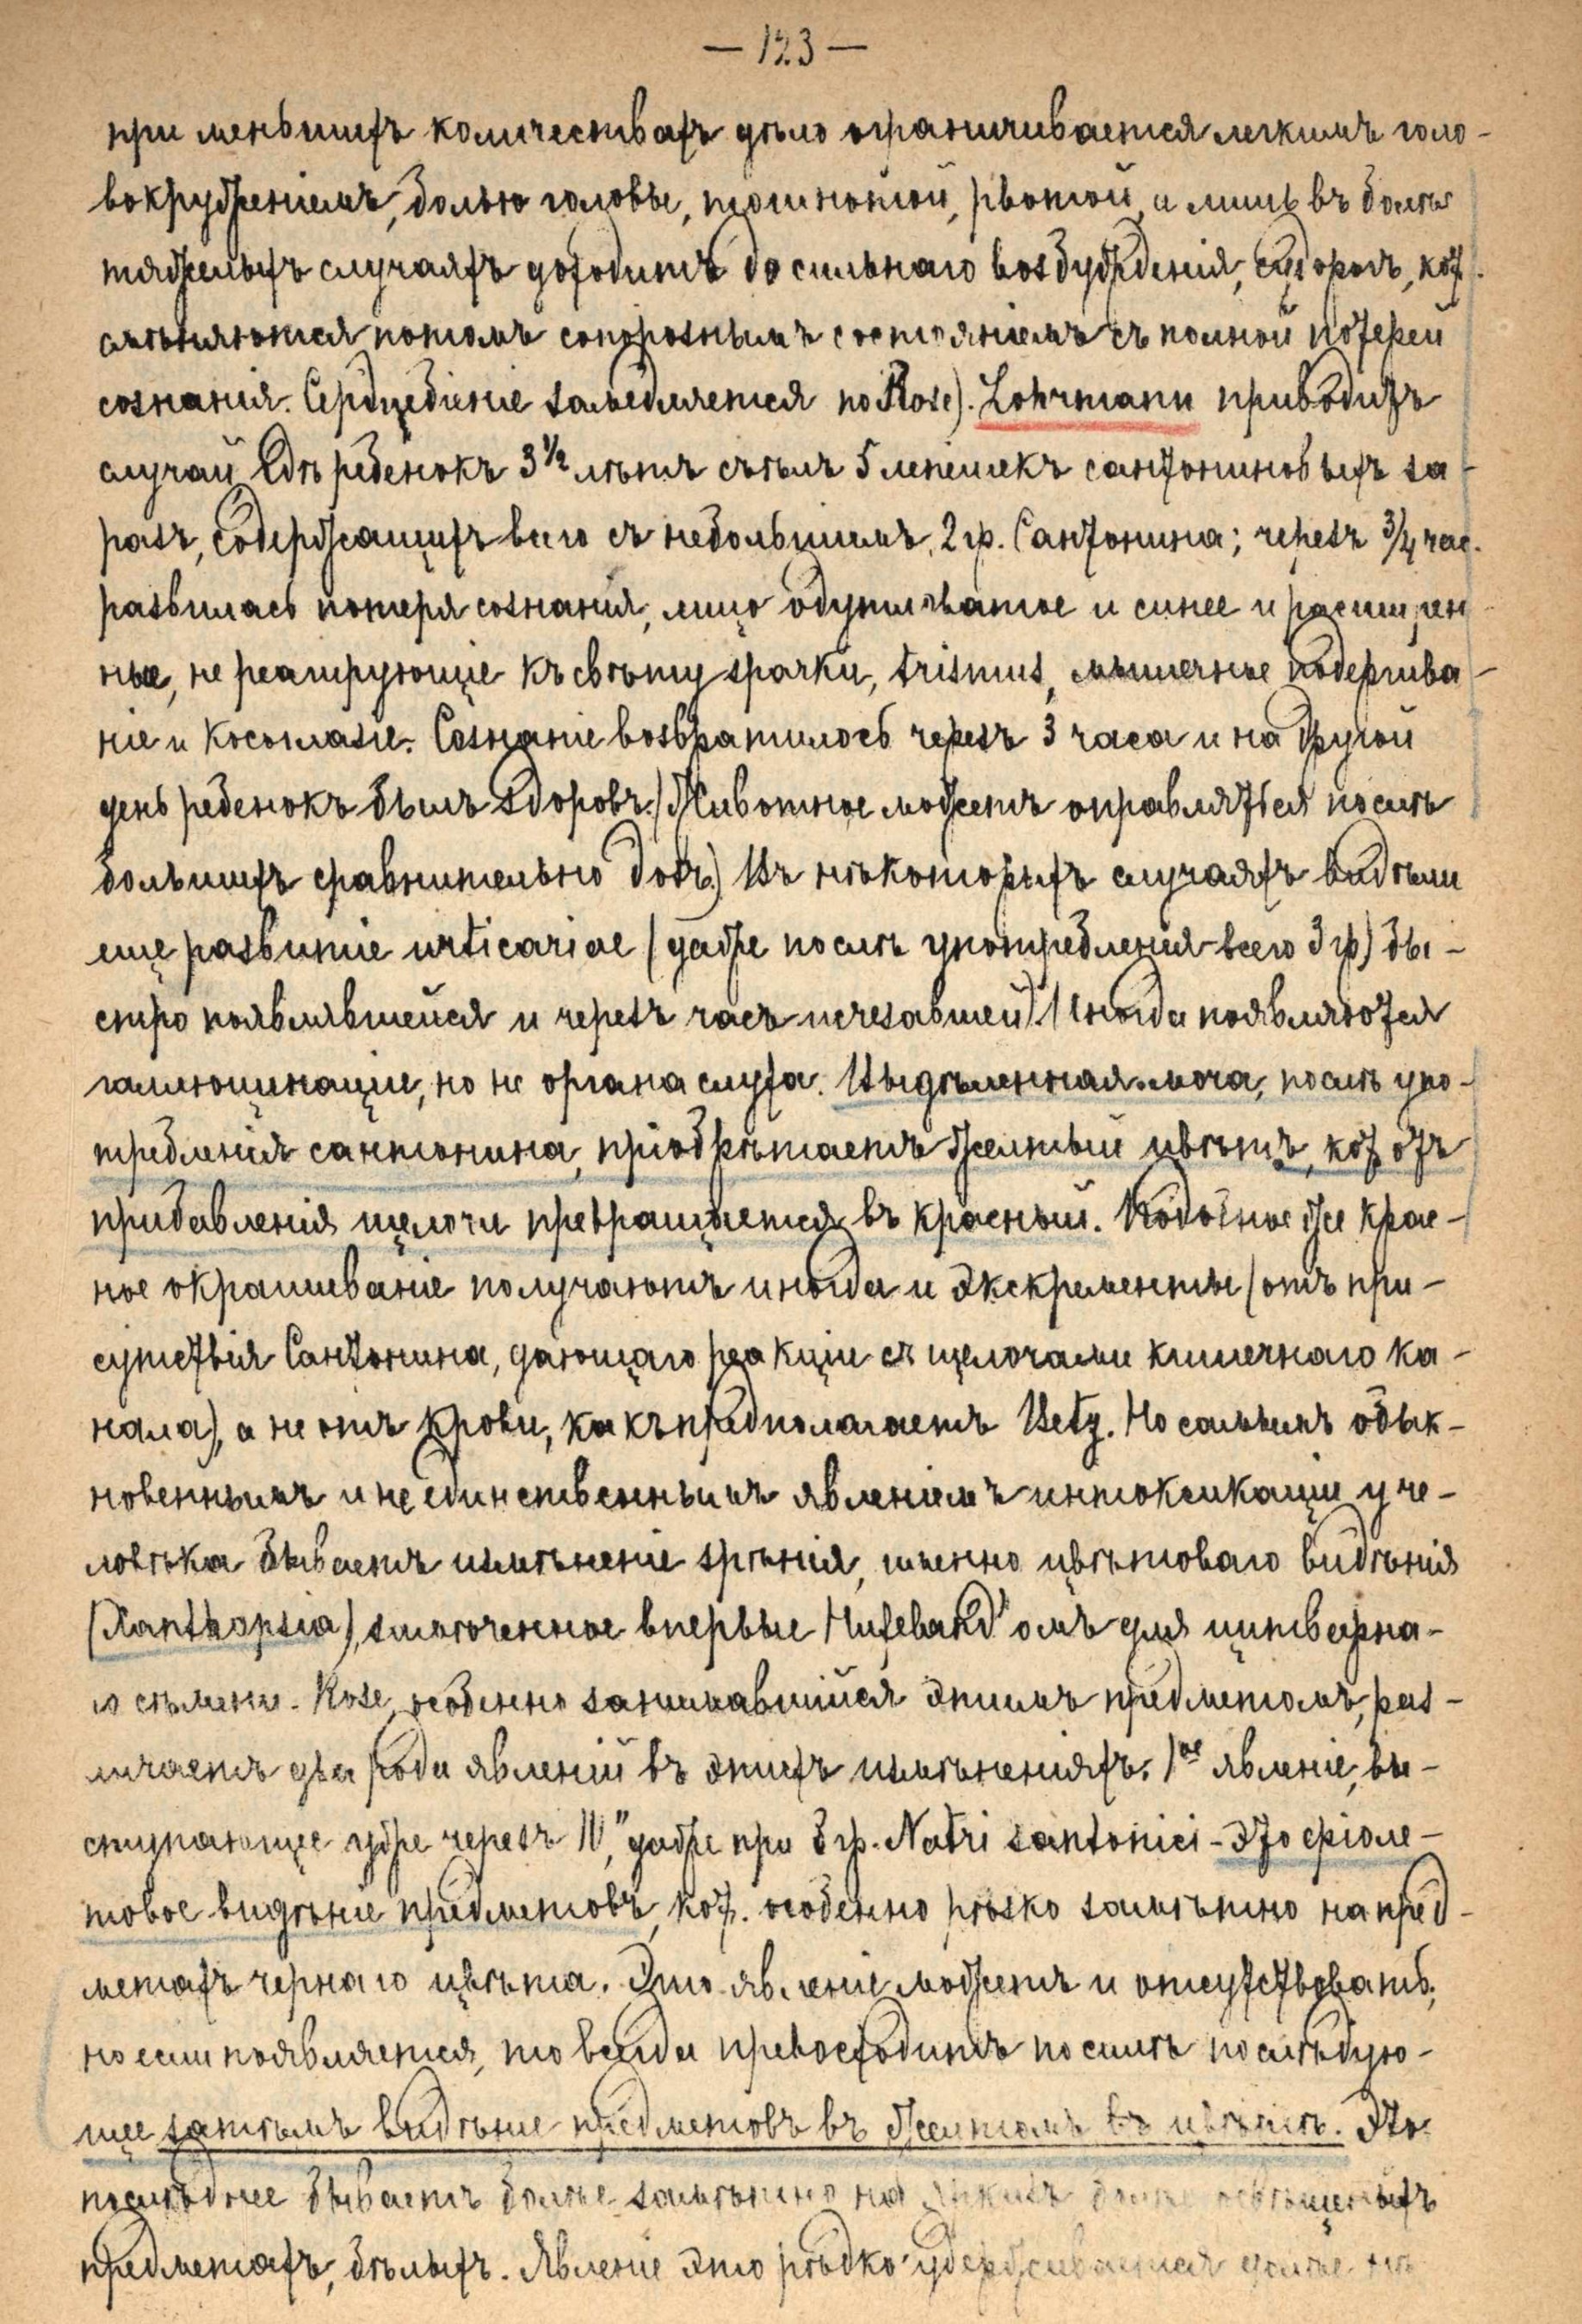 — 123 —
при меньшихъ количествахъ дѣло ограничивается легкимъ голо-
вокруженіемъ, болью головы, тошнотой, рвотой, и лишь въ болѣе
тяжелыхъ случаяхъ доходитъ до сильнаго возбужденія, судорогъ, кот.
смѣняются потомъ сопорознымъ состояніемъ съ полной потерей
сознанія. Сердцебіеніе замедляется по Rose). Lohrmann приводитъ
случай гдѣ ребенокъ 3 1/2 лѣтъ съѣлъ 5 лепешекъ сантониновыхъ за-
разъ, содержащихъ всего съ небольшимъ, 2 гр. Сантонина; черезъ 3/4 час.
развилась потеря сознанія, лицо одутловатое и синее и расширен-
ные, не реагирующіе къ свѣту зрачки, trismus, мышечные подергива-
ніе и косоглазіе. Сознаніе возвратилось черезъ 3 часа и на другой
день ребенокъ былъ здоровъ.) Животное можетъ оправляться послѣ
большихъ сравнительно дозъ.) Въ нѣкоторыхъ случаяхъ видѣли
еще развитіе urticariae (даже послѣ употребленія всего 3 гр) бы-
стро появлявшейся и черезъ часъ исчезавшей). Иногда появляются
галлюцинаціи, но не органа слуха. Выдѣленная моча, послѣ упо-
требленія сантонина, пріобрѣтаетъ желтый цвѣтъ, кот отъ
прибавленія щелочи превращается въ красный. Подобное же крас-
ное окрашиваніе получаютъ иногда и экскременты (отъ при-
сутствія Сантонина, дающаго реакціи съ щелочами кишечнаго ка-
нала), а не отъ крови, какъ предполагаетъ Betz. Но самымъ обык-
новеннымъ и не единственнымъ явленіемъ интоксикаціи у че-
ловѣка бываетъ измѣненіе зрѣнія, именно цвѣтоваго видѣнія
(Xanthopsia), замѣченное впервые Hufeland'омъ для цитварна-
го сѣмени. Rose, особенно занимавшійся этимъ предметомъ, раз-
личаетъ два рода явленій въ этихъ измѣненіяхъ. 1ое явленіе, вы-
ступающее уже черезъ 10," даже при 3 гр. Natri santonici - это фіоле-
товое видѣніе предметовъ, кот. особенно рѣзко замѣтно на пред-
метахъ чернаго цвѣта. Это явленіе можетъ и отсутствовать,
но если появляется, то всегда превосходитъ по силѣ послѣдую-
щее затѣмъ видѣніе предметовъ въ желтомъ въ цвѣтѣ. Это
послѣднее бываетъ болѣе замѣтно на яркихъ болѣе освѣщенныхъ
предметахъ, бѣлыхъ. Явленіе это рѣдко удерживается долѣе